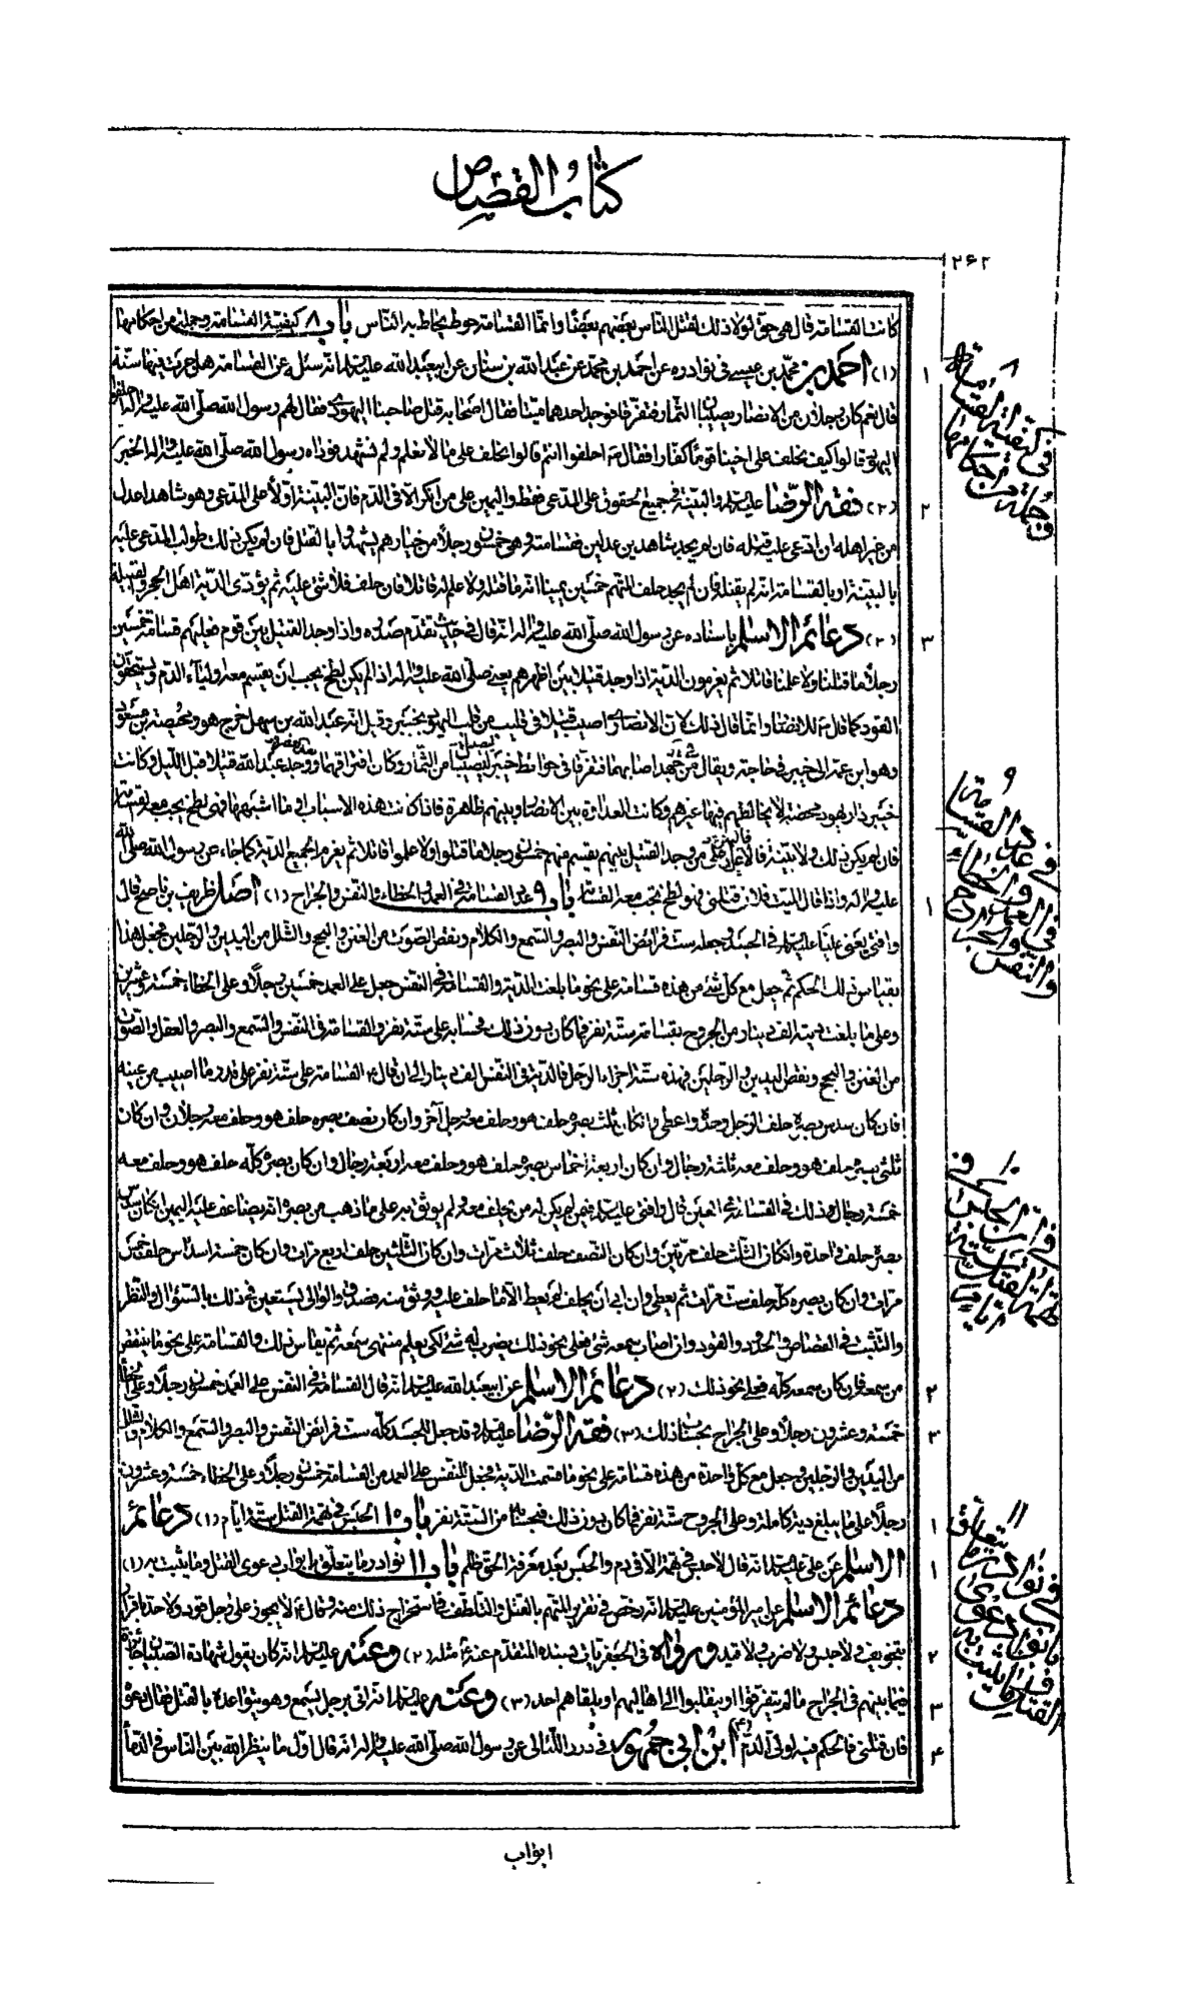 كتاب القصاص
٢۶٢
كانت القسامة قال هى حق لولا ذلك لقتل الناس بعضهم بعضا وانما القسامة حوط يحاط به الناس باب ٨ كيفية القسامة وجملة من احكامها
(١) احمد بن محمد بن عيسى فى نوادره عن احمد بن محمد عن عبد الله بن سنان عن ابيعبد الله عليه السلام انه سئل عن القسامة هل جرت فيها سنة
قال نعم كان رجلان من الانصار يصيبان الثمار فتفرقا فوجد احدهما ميتا فقال اصحابه قتل صاحبنا اليهودى فقال لهم رسول الله صلى الله عليه واله احلفوا
اليهود قالوا كيف نحلف على اخينا قوما كفارا فقال احلفوا انتم قالوا نحلف على ما لا نعلم ولم نشهد فوداه رسول الله صلى الله عليه واله الخبر
(٢) فقه الرضا عليه السلام والبينة فى جميع الحقوق على المدعى فقط واليمين على من انكر الا فى الدم فان البينة اولا على المدعى وهو شاهدا عدل
من غير اهله ان ادعى عليه قتله فان لم يجد شاهدين عدلين فقسامة وهى خمسون رجلا من خيارهم يشهدون بالقتل فان لم يكن ذلك طولب المدعى عليه
بالبينة او بالقسامة انه لم يقتله فان لم يجد حلف المتهم خمسين يمينا انه ما قتله ولا علم له قاتلا فان حلف فلا شئ عليه ثم يؤدى الدية اهل الحجر والقبيلة
(٣) دعائم الاسلام باسناده عن رسول الله صلى الله عليه واله انه قال فى حديث تقدم صدره واذا وجد القتيل بين قوم فعليهم قسامة خمسين
رجلا ما قتلنا ولا علمنا قاتلا ثم يغرمون الدية اذا وجد قتيلا بين اظهرهم يعنى صلى الله عليه واله اذا لم يكن لطخ يجب ان يقسم معه اولياء الدم ويستحقون
القود كما قال للانصار وانما قال ذلك لان الانصارى اصيب قتيلا فى قليب من قلب اليهود بخيبر وقيل انه عبد الله بن سهل خرج هو ومحيصة بن مسعود
وهو ابن عمه الى خيبر فى حاجة ويقال من جهد اصابهما فتفرقا فى حوائط خيبر ليصيبا من الثمار وكان افتراقهما بعد العصر ووجد عبد الله قتيلا قبل الليل وكانت
خيبر دار يهود محضة لا يخالطهم فيها غيرهم وكانت العداوة بين الانصار وبينهم ظاهرة فاذا كانت هذه الاسباب او ما اشبهها فهى لطخ يجب معه القسامة
فان لم يكن ذلك ولا بينة فالايمان على من وجد القتيل بينهم يقسم منهم خمسون رجلا ما قتلوا ولا علموا قاتلا ثم يغرم الجميع الدية كما جاء عن رسول الله صلى الله
عليه واله واذا قال الميت فلان قتلنى فهو لطخ تجب معه القسامة باب ٩ عدد القسامة فى العمد والخطاء والنفس والجراح (١) اصل ظريف بن ناصح قال
وافتى يعنى عليا عليه السلام فى الجسد وجعله ست فرائض النفس والبصر والسمع والكلام ونقص الصوت من الغنن والبحح والشلل من اليدين والرجلين فجعل هذا
بقياس ذلك الحكم ثم جعل مع كل شئ من هذه قسامة على نحو ما بلغت الدية والقسامة فى النفس جعل على العمد خمسين رجلا وعلى الخطاء خمسة وعشرين
وعلى ما بلغت ديته الف دينار من الجروح بقسامة ستة نفر فما كان دون ذلك فحسابه على ستة نفر والقسامة فى النفس والسمع والبصر والعقل والصوت
من الغنن والبحح ونقص اليدين والرجلين فهذه ستة اجزاء الرجل فالدية فى النفس الف دينار الى ان قال القسامة على ستة نفر على قدر ما اصيب من عينه
فان كان سدس بصره حلف الرجل وحده واعطى وان كان ثلث بصره حلف هو وحلف معه رجل آخر وان كان نصف بصره حلف هو وحلف معه رجلان وان كان
ثلثى بصره حلف هو وحلف معه ثلثة رجال وان كان اربعة اخماس بصره حلف هو وحلف معه اربعة رجال وان كان بصره كله حلف هو وحلف معه
خمسة رجال وذلك فى القسامة فى العين قال وافتى عليه السلام فيمن لم يكن له من يحلف معه ولم يوثق به على ما ذهب من بصره انه يضاعف عليه اليمين ان كان سدس
بصره حلف واحدة وان كان الثلث حلف مرتين وان كان النصف حلف ثلاث مرات وان كان الثلثين حلف اربع مرات وان كان خمسة اسداس حلف خمس
مرات وان كان بصره كله حلف ست مرات ثم يعطى وان ابى ان يحلف لم يعط الا ما حلف عليه ووثق منه بصدق والوالى يستعين فى ذلك بالسؤال والنظر
والتثبت فى القصاص والحدود والقود وان اصاب سمعه شئ فعلى نحو ذلك يضرب له شئ لكى يعلم منتهى سمعه ثم يقاس ذلك والقسامة على نحو ما ينقص
من سمعه فان كان سمعه كله فعلى نحو ذلك (٢) دعائم الاسلام عن ابيعبد الله عليه السلام انه قال القسامة فى النفس على العمد خمسون رجلا وعلى الخطأ
خمسة وعشرون رجلا وعلى الجراح بحساب ذلك (٣) فقه الرضا عليه السلام وقد جعل للجسد كله ست فرائض النفس والبصر والسمع والكلام والشلل
من اليدين والرجلين وجعل مع كل واحدة من هذه قسامة على نحو ما قسمت الدية فجعل للنفس على العمد من القسامة خمسون رجلا وعلى الخطاء خمسة وعشرون
رجلا على ما يبلغ دية كاملة وعلى الجروح ستة نفر فما كان دون ذلك فبحسابه من الستة نفر باب ١٠ الحبس فى تهمة القتل ستة ايام (١) دعائم
الاسلام عن على عليه السلام انه قال لا حبس فى تهمة الا فى دم والحبس بعد معرفة الحق ظلم باب ١١ نوادر ما يتعلق بابواب دعوى القتل وما يثبت به (١)
دعائم الاسلام عن امير المؤمنين عليه السلام انه رخص فى تقرير المتهم بالقتل والتلطف فى استخراج ذلك منه وقال لا يجوز على رجل قود ولا حد باقرار
بتخويف ولا حبس ولا ضرب ولا قيد ورواه فى الجعفريات بسنده المتقدم عنه مثله (٢) وعنه عليه السلام انه كان يقول شهادة الصبيان جائزة
فيما بينهم فى الجراح ما لم يتفرقوا او ينقلبوا الى اهاليهم او يلقاهم احد (٣) وعنه عليه السلام انه اتى برجل يسمع وهو يتواعده بالقتل فقال دعوه
فان قتلنى فالحكم فيه لولى الدم (۴) ابن ابى جمهور فى درر اللئالى عن رسول الله صلى الله عليه واله انه قال اول ما ينظر الله بين الناس فى الدماء
ابواب
٨
فى كيفية القسامة
وجملة من احكامها
٩
فى عدد القسامة
فى العمد والخطاء
والنفس والجراح
١٠
فى ان الحبس فى
تهمة القتل ستة
ايام
١١
فى نوادر ما يتعلق
بابواب دعوى
القتل وما يثبت به
١
٢
٣
١
٢
٣
١
١
٢
٣
۴